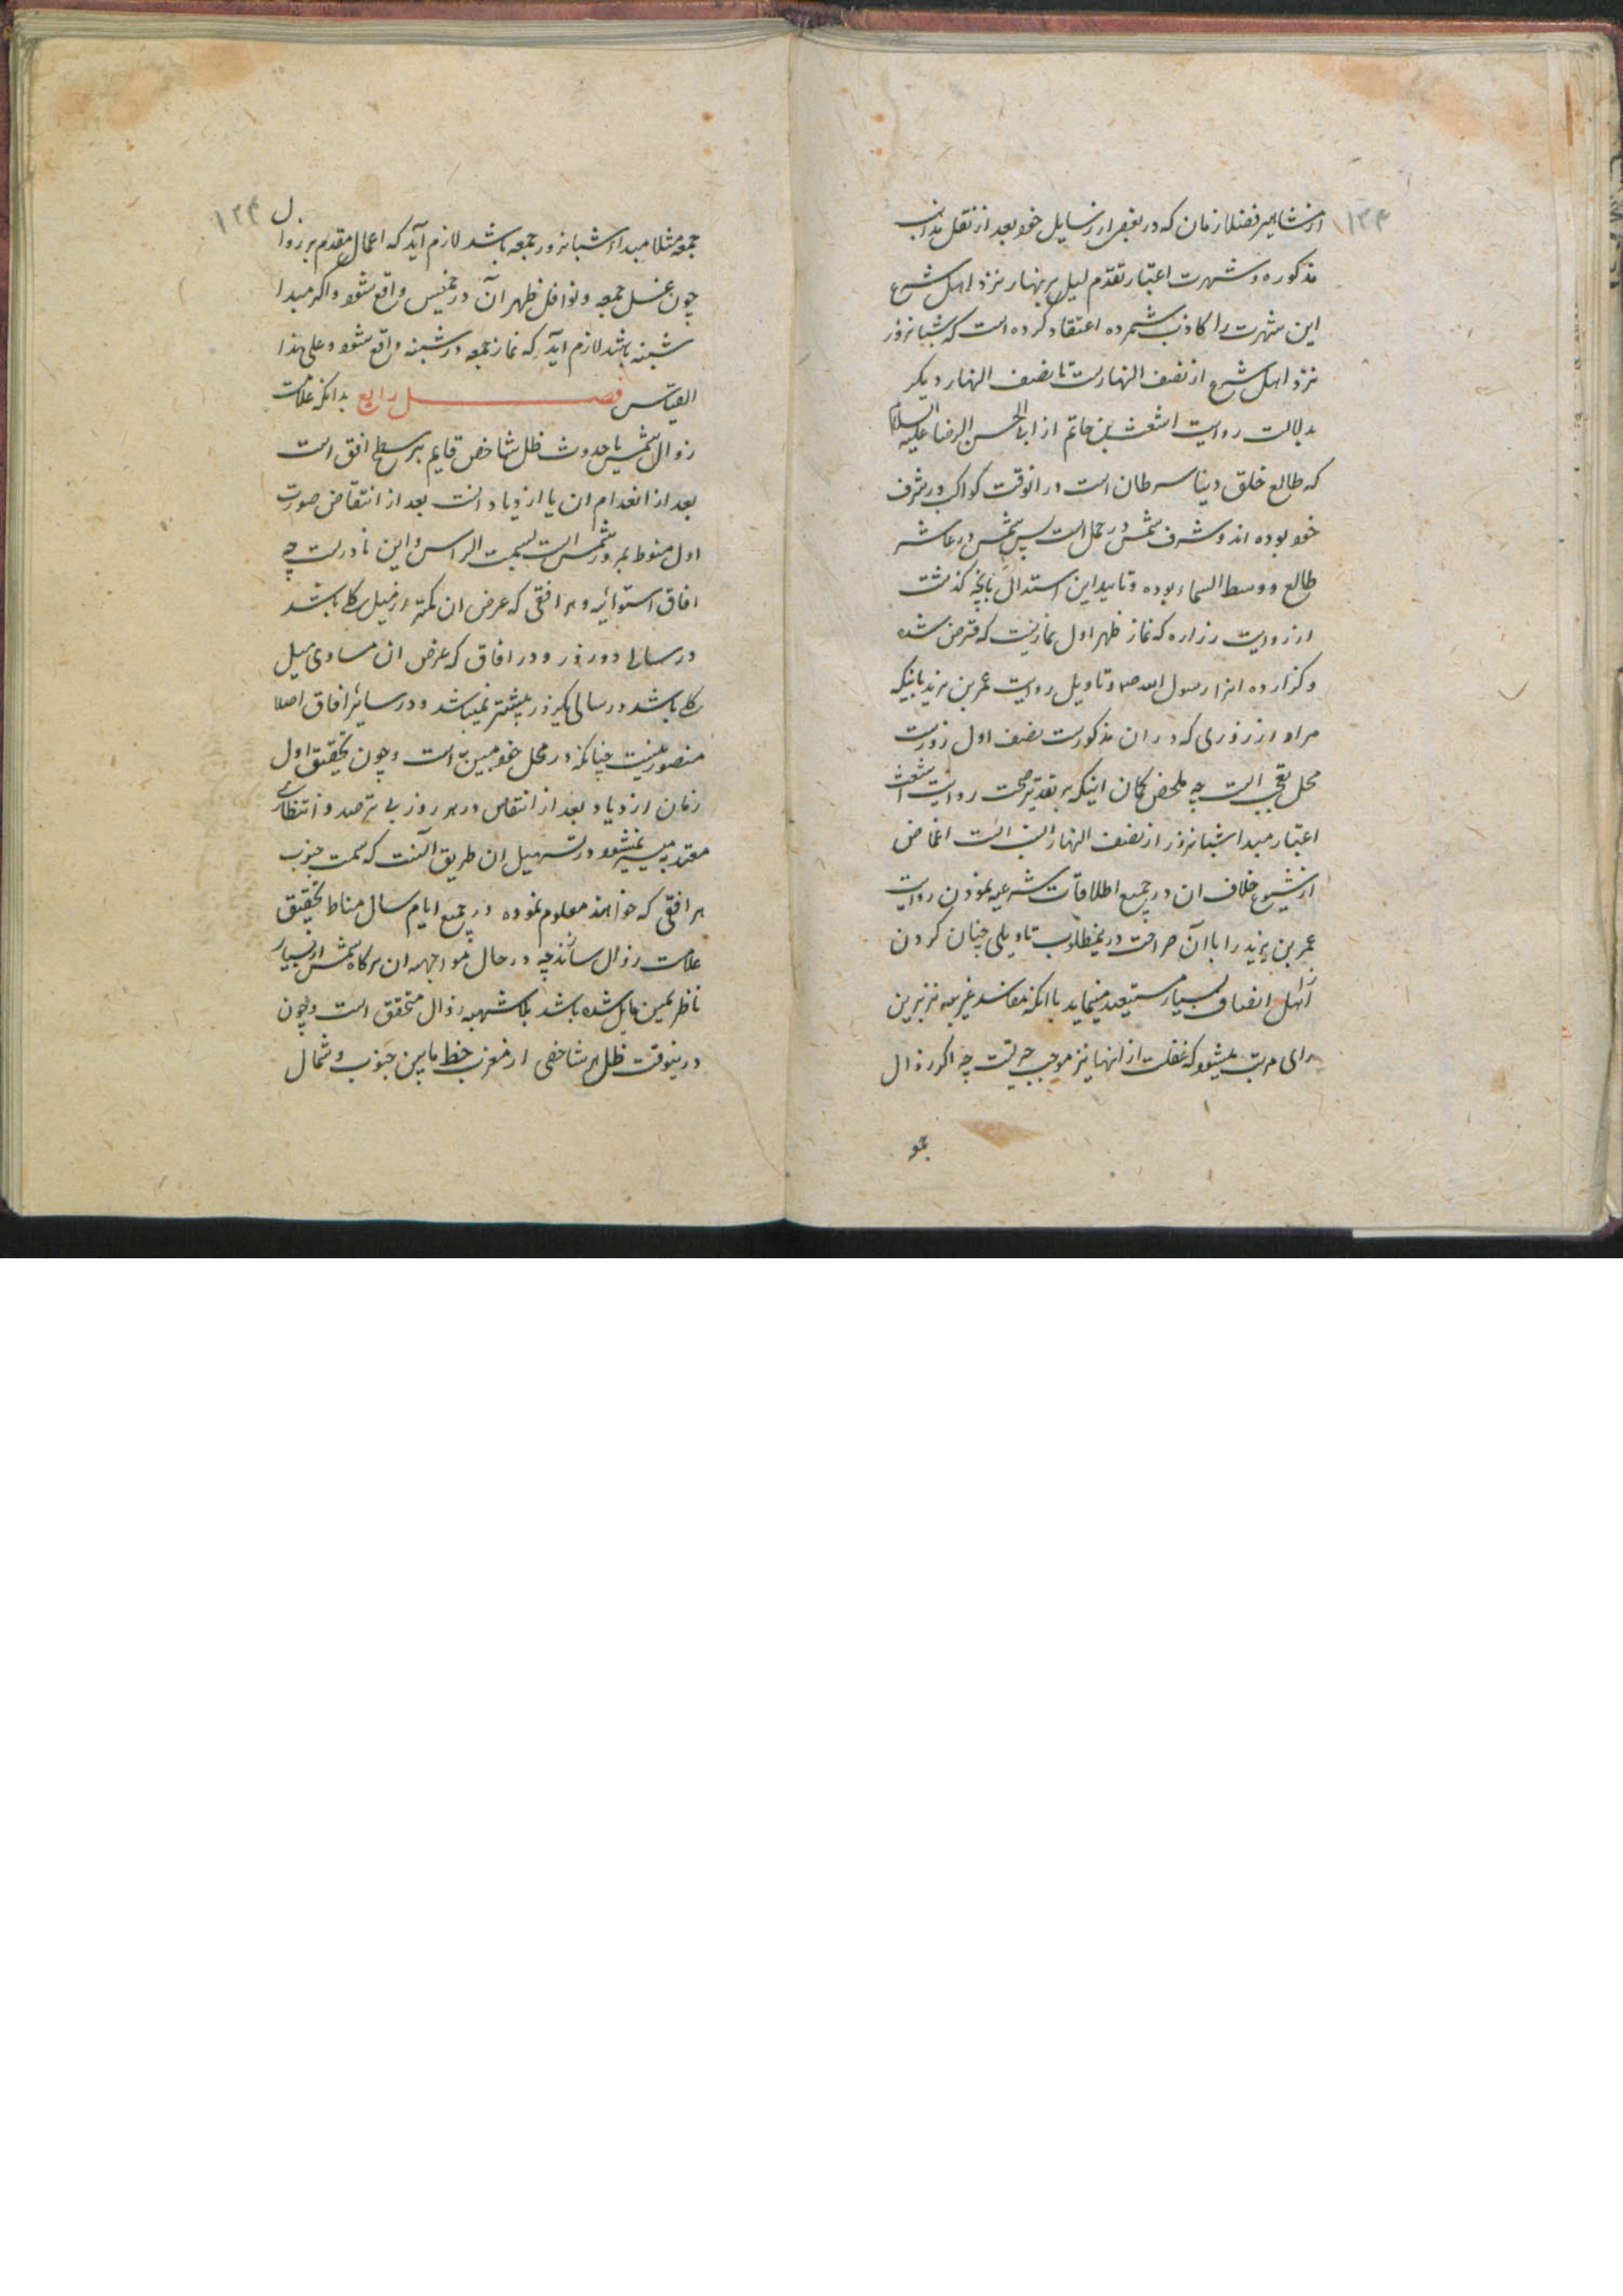 ۱۳۳
از مشاهیر فضلا زمان که در بعضی از رسایل خود بعد از نقل مذاهب
مذکوره و شهرت اعتبار تقدم لیل بر نهار نزد اهل شرع
این شهرت را کاذب شمرده اعتقاد کرده است که شبانروز
نزد اهل شرع از نصف النهارست تا نصف النهار دیکر
بدلالت روایت اشعث بن حاتم از ابی الحسن الرضا علیه السلام
که طالع خلق دنیا سرطان است در انوقت کواکب در شرف
خود بوده اند و شرف شمس در حمل است پس شمس در عاشر
طالع و وسط السماء بوده و تایید این استدلال بانچه کذشت
از روایت زراره که نماز ظهر اول نمازیست که فترض شده
و کزارده انرا رسول الله ص و تاویل روایت عمر بن یزید بانیکه
مراد از روزی که در ان مذکورست نصف اول روزست
محل تعجب است چه ملخص کمان اینکه بر تقدیر صحت روایت اشعث
اعتبار مبدا شبانروز از نصف النهار انسب است اغماض
از شیوع خلاف ان در جمیع اطلاقات شرعیه نمودن و روایت
عمر بن یزید را با آن صراحت درینمطلوب تاویلی چنان کردن
از اهل انصاف بسیار مستبعد مینماید با انکه مفاسد غریبه نیز برین
رای مرتب میشود که غفلت از انها نیز موجب حیرتست چه اکر زوال
جمو
۱۳۴
جمعه مثلا مبدا شبانروز جمعه باشد لازم آید که اعمال مقدم بر زوال
چون غسل جمعه و نوافل ظهر آن در خمیس واقع شود و اکر مبدا
شبنه باشد لازم آید که نماز جمعه در شبنه واقع شود و علی هذا
القیاس فصل رابع بدانکه علامت
زوال شمس یا حدوث ظل شاخص قایم بر سطح افق است
بعد از انعدام ان یا ازدیاد انست بعد از انتقاص صورت
اول منوط بمرور شمس است بسمت الراس و این نادرست چه
افاق استوائیه و هر افقی که عرض ان کمتر از میل کلی باشد
در سالی دو روز و در افاق که عرض ان مساوی میل
کلی باشد در سالی یکروز بیشتر نمیباشد و در سایر افاق اصلا
متصور نیست چنانکه در محل خود مبین است و چون تحقیق اول
زمان ازدیاد بعد از انتقاص در هر روز بی ترصد و انتظاری
معتد به میسر نمیشود و در تسهیل ان طریق آنست که سمت جنوب
هر افقی که خواهند معلوم نموده در جمیع ایام سال مناط تحقیق
علامت زوال سازند چه در حال مواجهه ان هرکاه شمس از یسار
ناظر بیمین مایل شده باشد بلا شبهه زوال متحقق است و چون
درینوقت ظل هر شاخص از مغرب خط ما بین جنوب و شمال